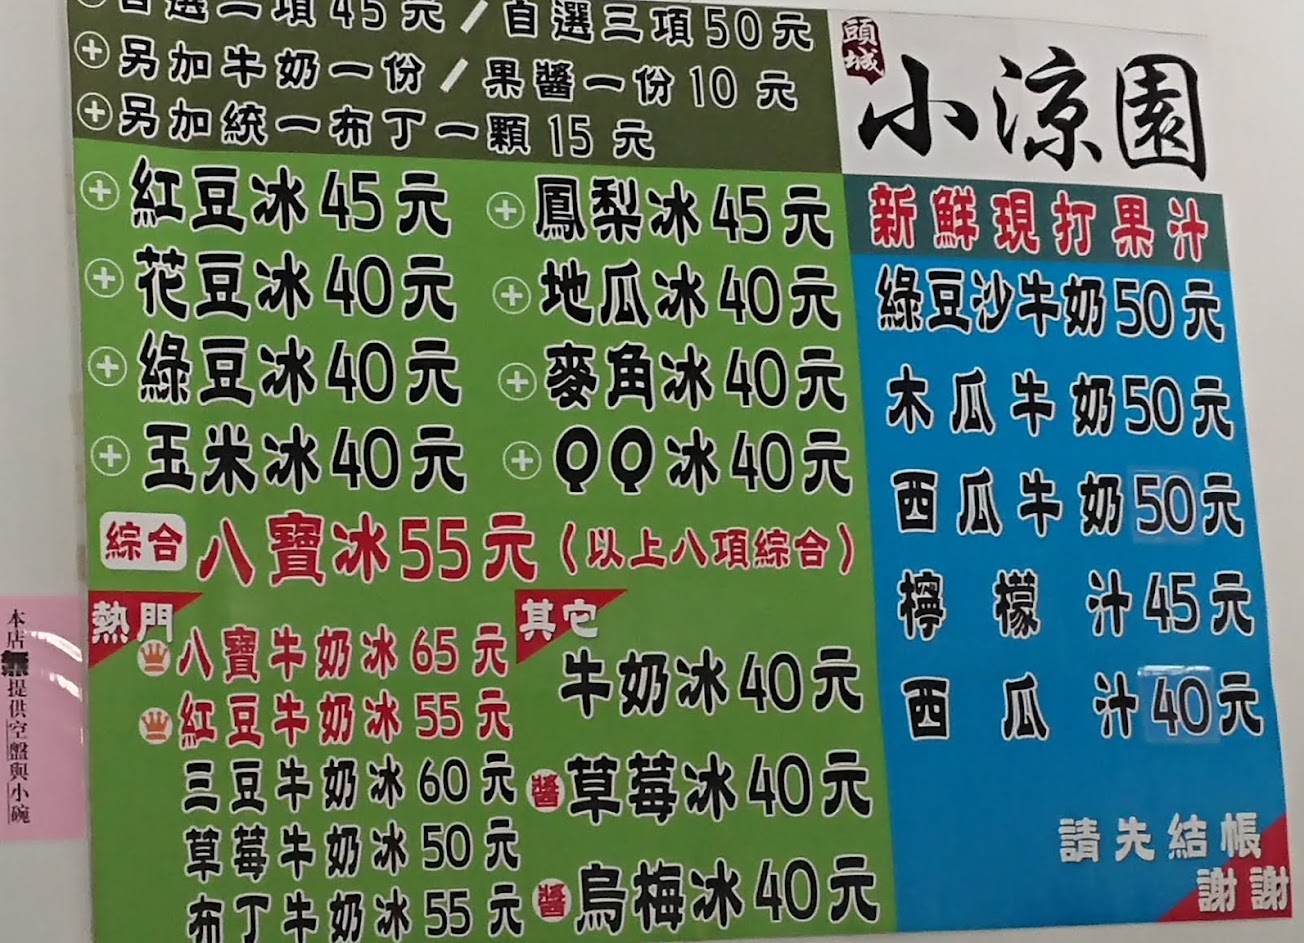 自選二項45元/自選三項50元
另加牛奶一份/果醬一份10元
另加統一布丁一顆15元
紅豆冰45元
鳳梨冰45元
花豆冰40元
地瓜冰40元
綠豆冰40元
麥角冰40元
玉米冰40元
QQ冰40元
綜合 八寶冰55元(以上八項綜合)
熱門
八寶牛奶冰65元
紅豆牛奶冰55元
三豆牛奶冰60元
草莓牛奶冰50元
布丁牛奶冰55元
其它
牛奶冰40元
醬 草莓冰40元
醬 烏梅冰40元
頭城
小涼園
新鮮現打果汁
綠豆沙牛奶50元
木瓜牛奶50元
西瓜牛奶50元
檸檬汁45元
西瓜汁40元
請先結帳
謝謝
本店無提供空盤與小碗